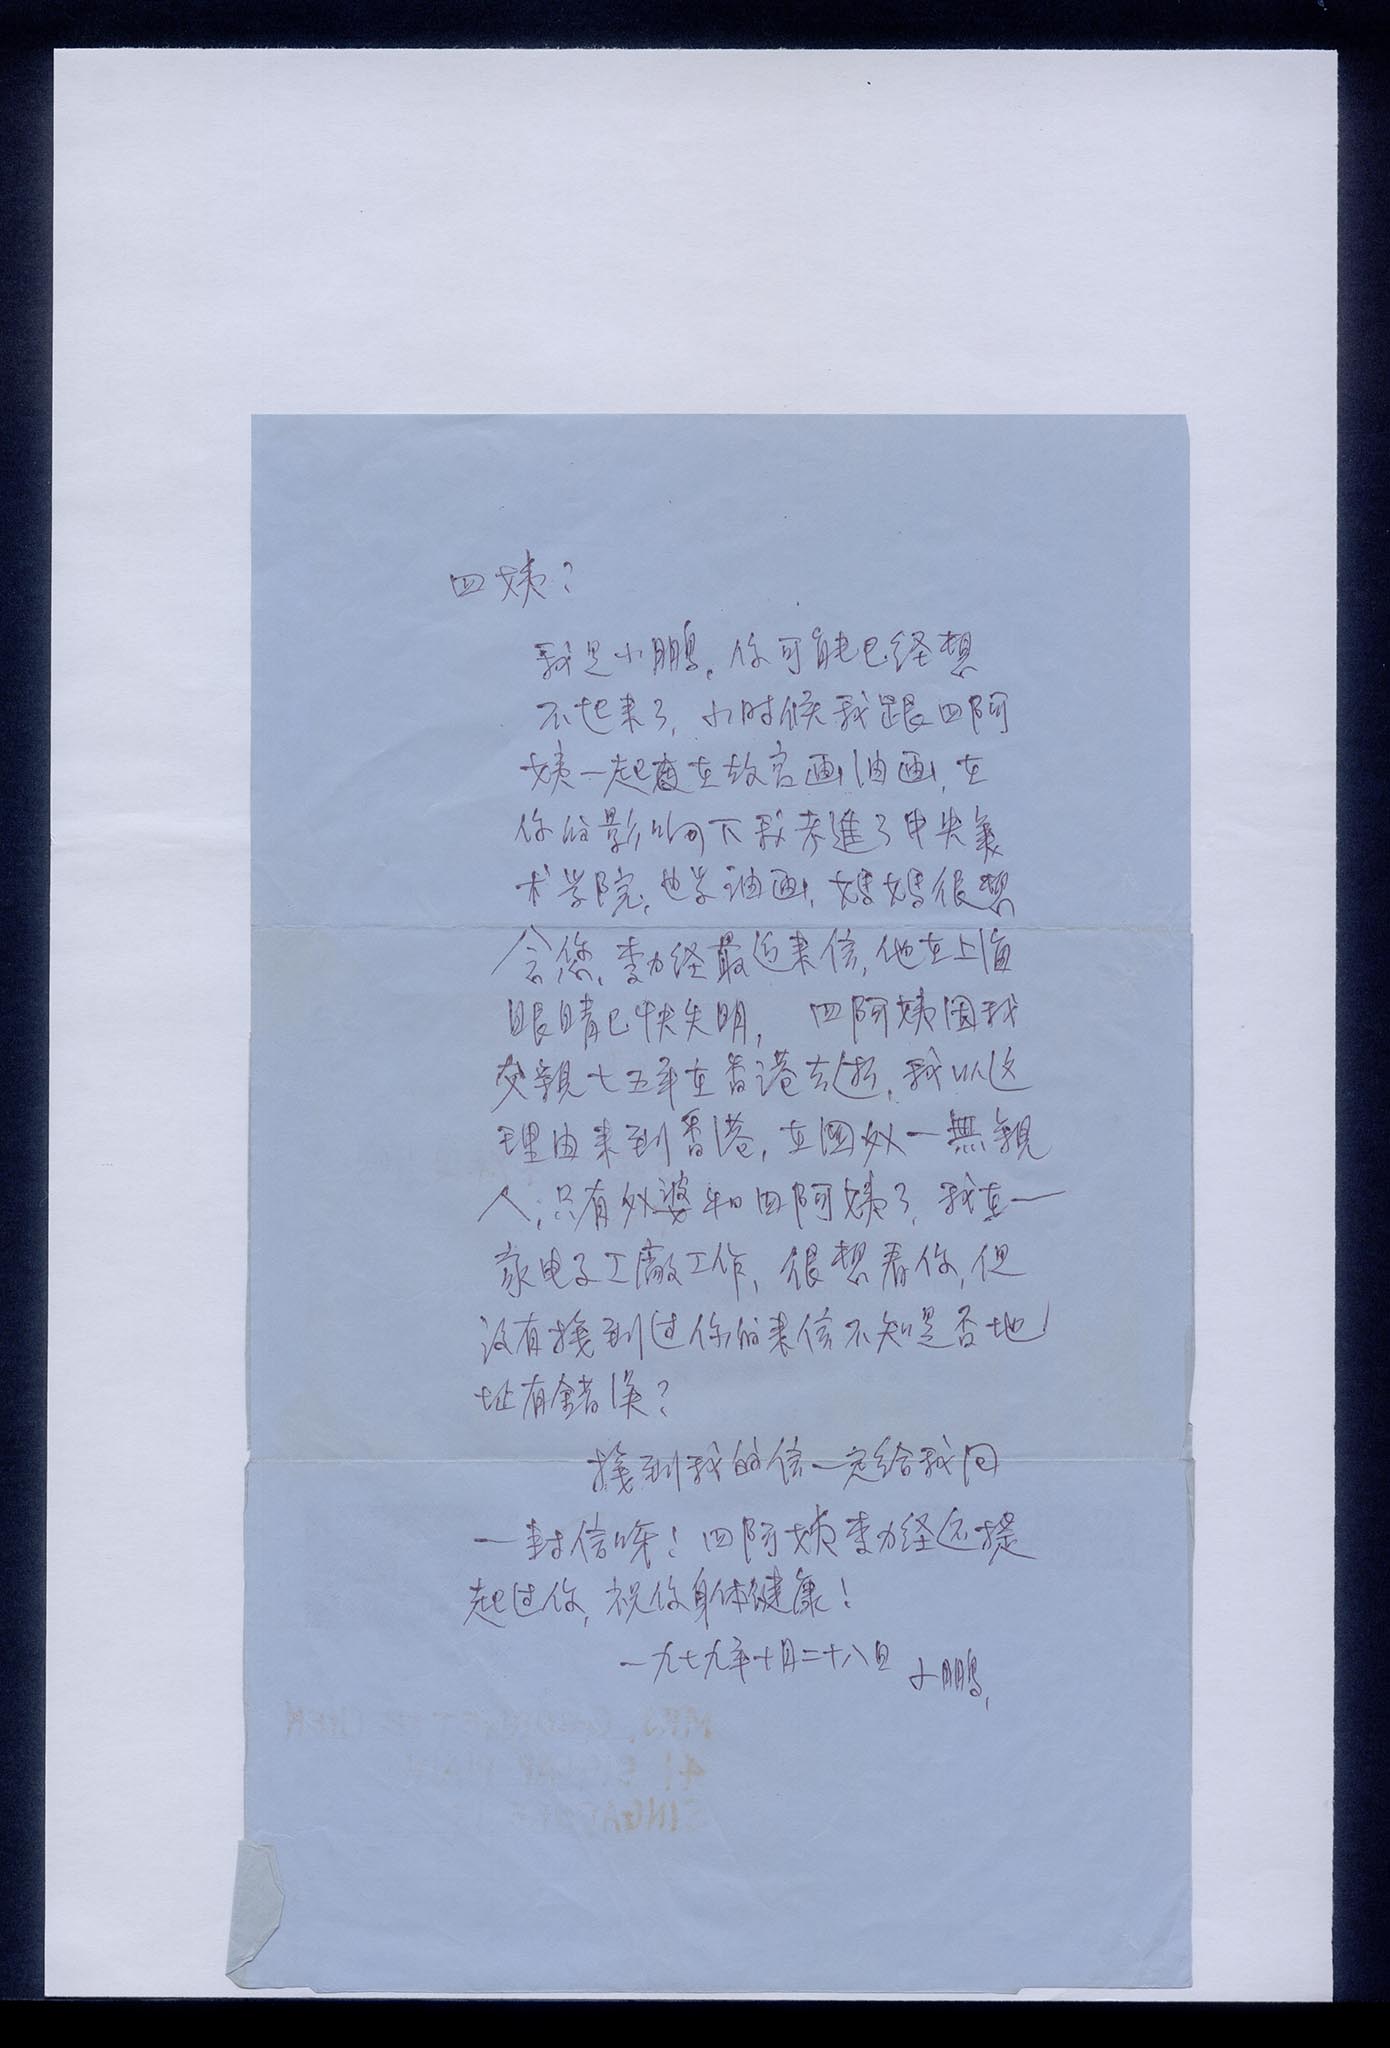 四姨？
我是小鵬，你可能已经想
不起来了，小时候我跟四阿
姨一起在故宫画油画，在
你的影响下我考進了中央美
术学院，也学油画，媽媽很想
念您，李力经最近来信，他在上海
眼睛已快失明，四阿姨因我
父親七五年在香港去逝，我以这
理由来到香港，在國外一無親
人，只有外婆和四阿姨了，我在一
家电子工廠工作，很想看你，但
没有接到过你的来信不知是否地
址有錯误？
接到我的信一定给我回
一封信呀！四阿姨李力经还提
起过你，祝你身体健康！
一九七九年十月二十八日 小鵬，
MRS. GEORGETTE CHEN
41 SIGLAP PLAIN
SINGAPORE